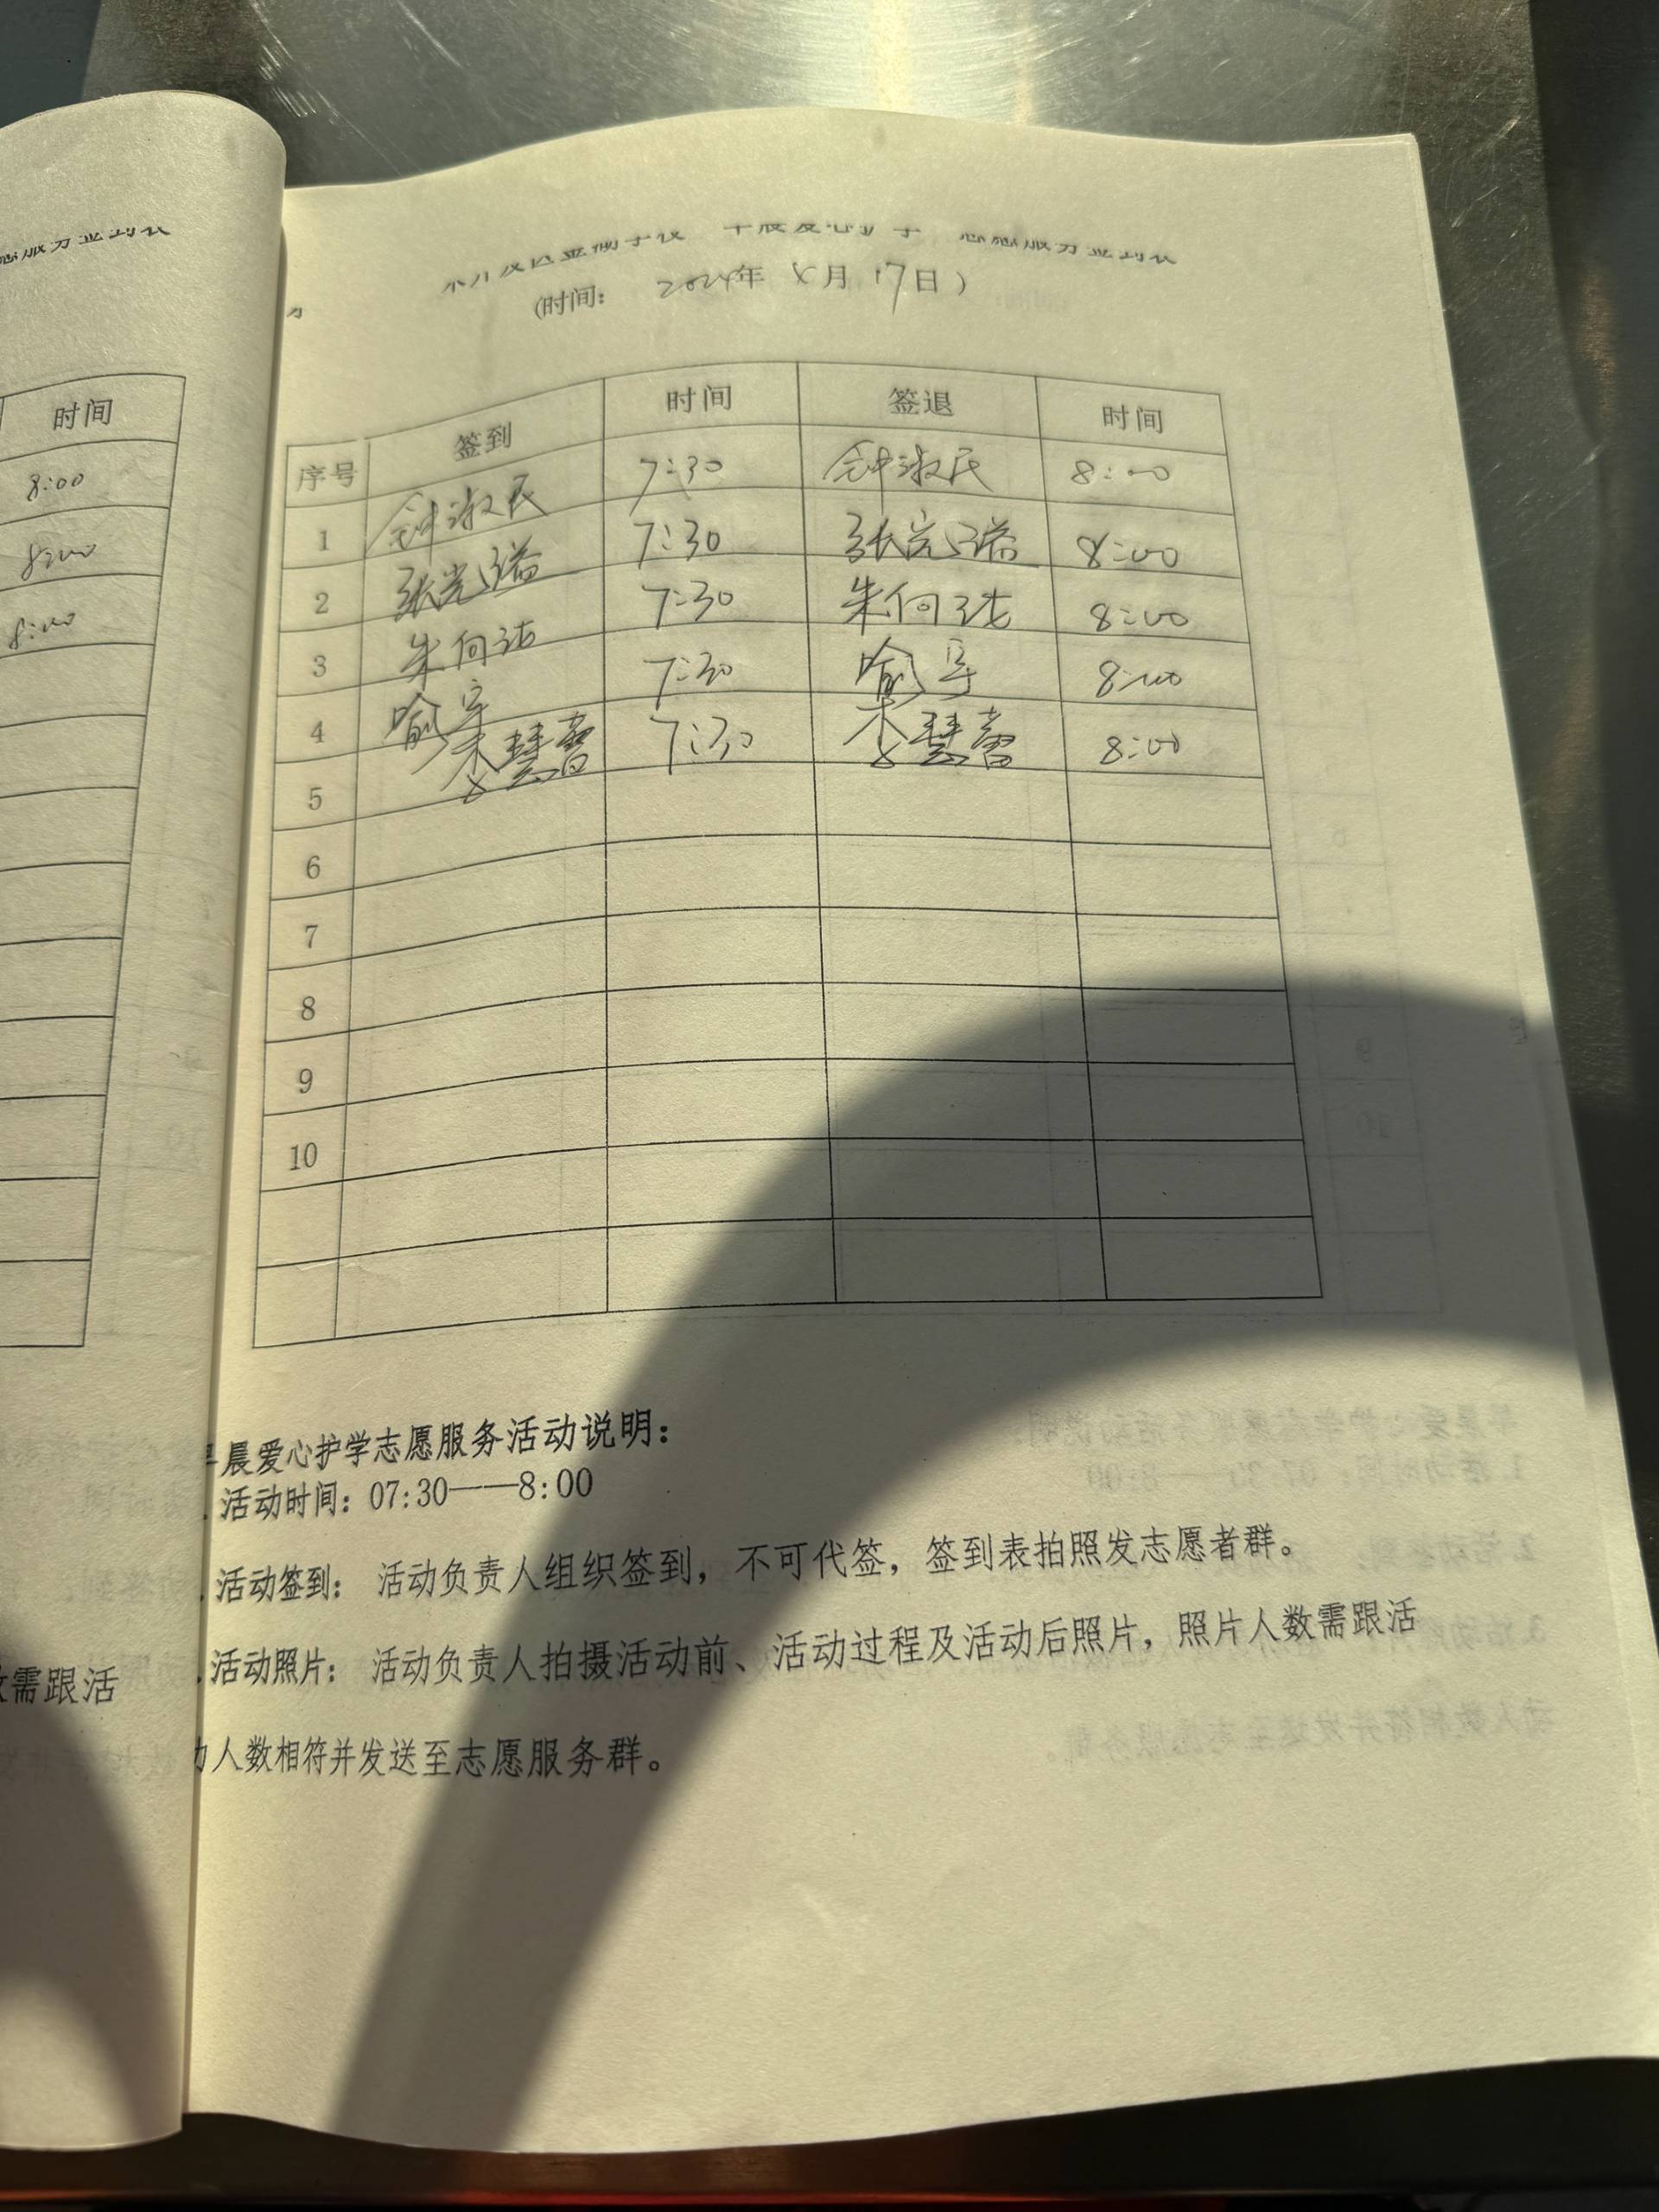 时间
8:00
8:00
8:00
需跟活
志愿服务签到表
(时间: 2024年 月 17日)
序号 签到 时间 签退 时间
1 钟淑民 7:30 钟淑民 8:00
2 7:30 8:00
3 7:30 8:00
4 喻宇 7:30 喻宇 8:00
5 李慧蕾 7:30 李慧蕾 8:00
6
7
8
9
10
晨爱心护学志愿服务活动说明:
活动时间: 07:30——8:00
活动签到: 活动负责人组织签到, 不可代签, 签到表拍照发志愿者群。
活动照片: 活动负责人拍摄活动前、活动过程及活动后照片, 照片人数需跟活
人数相符并发送至志愿服务群。